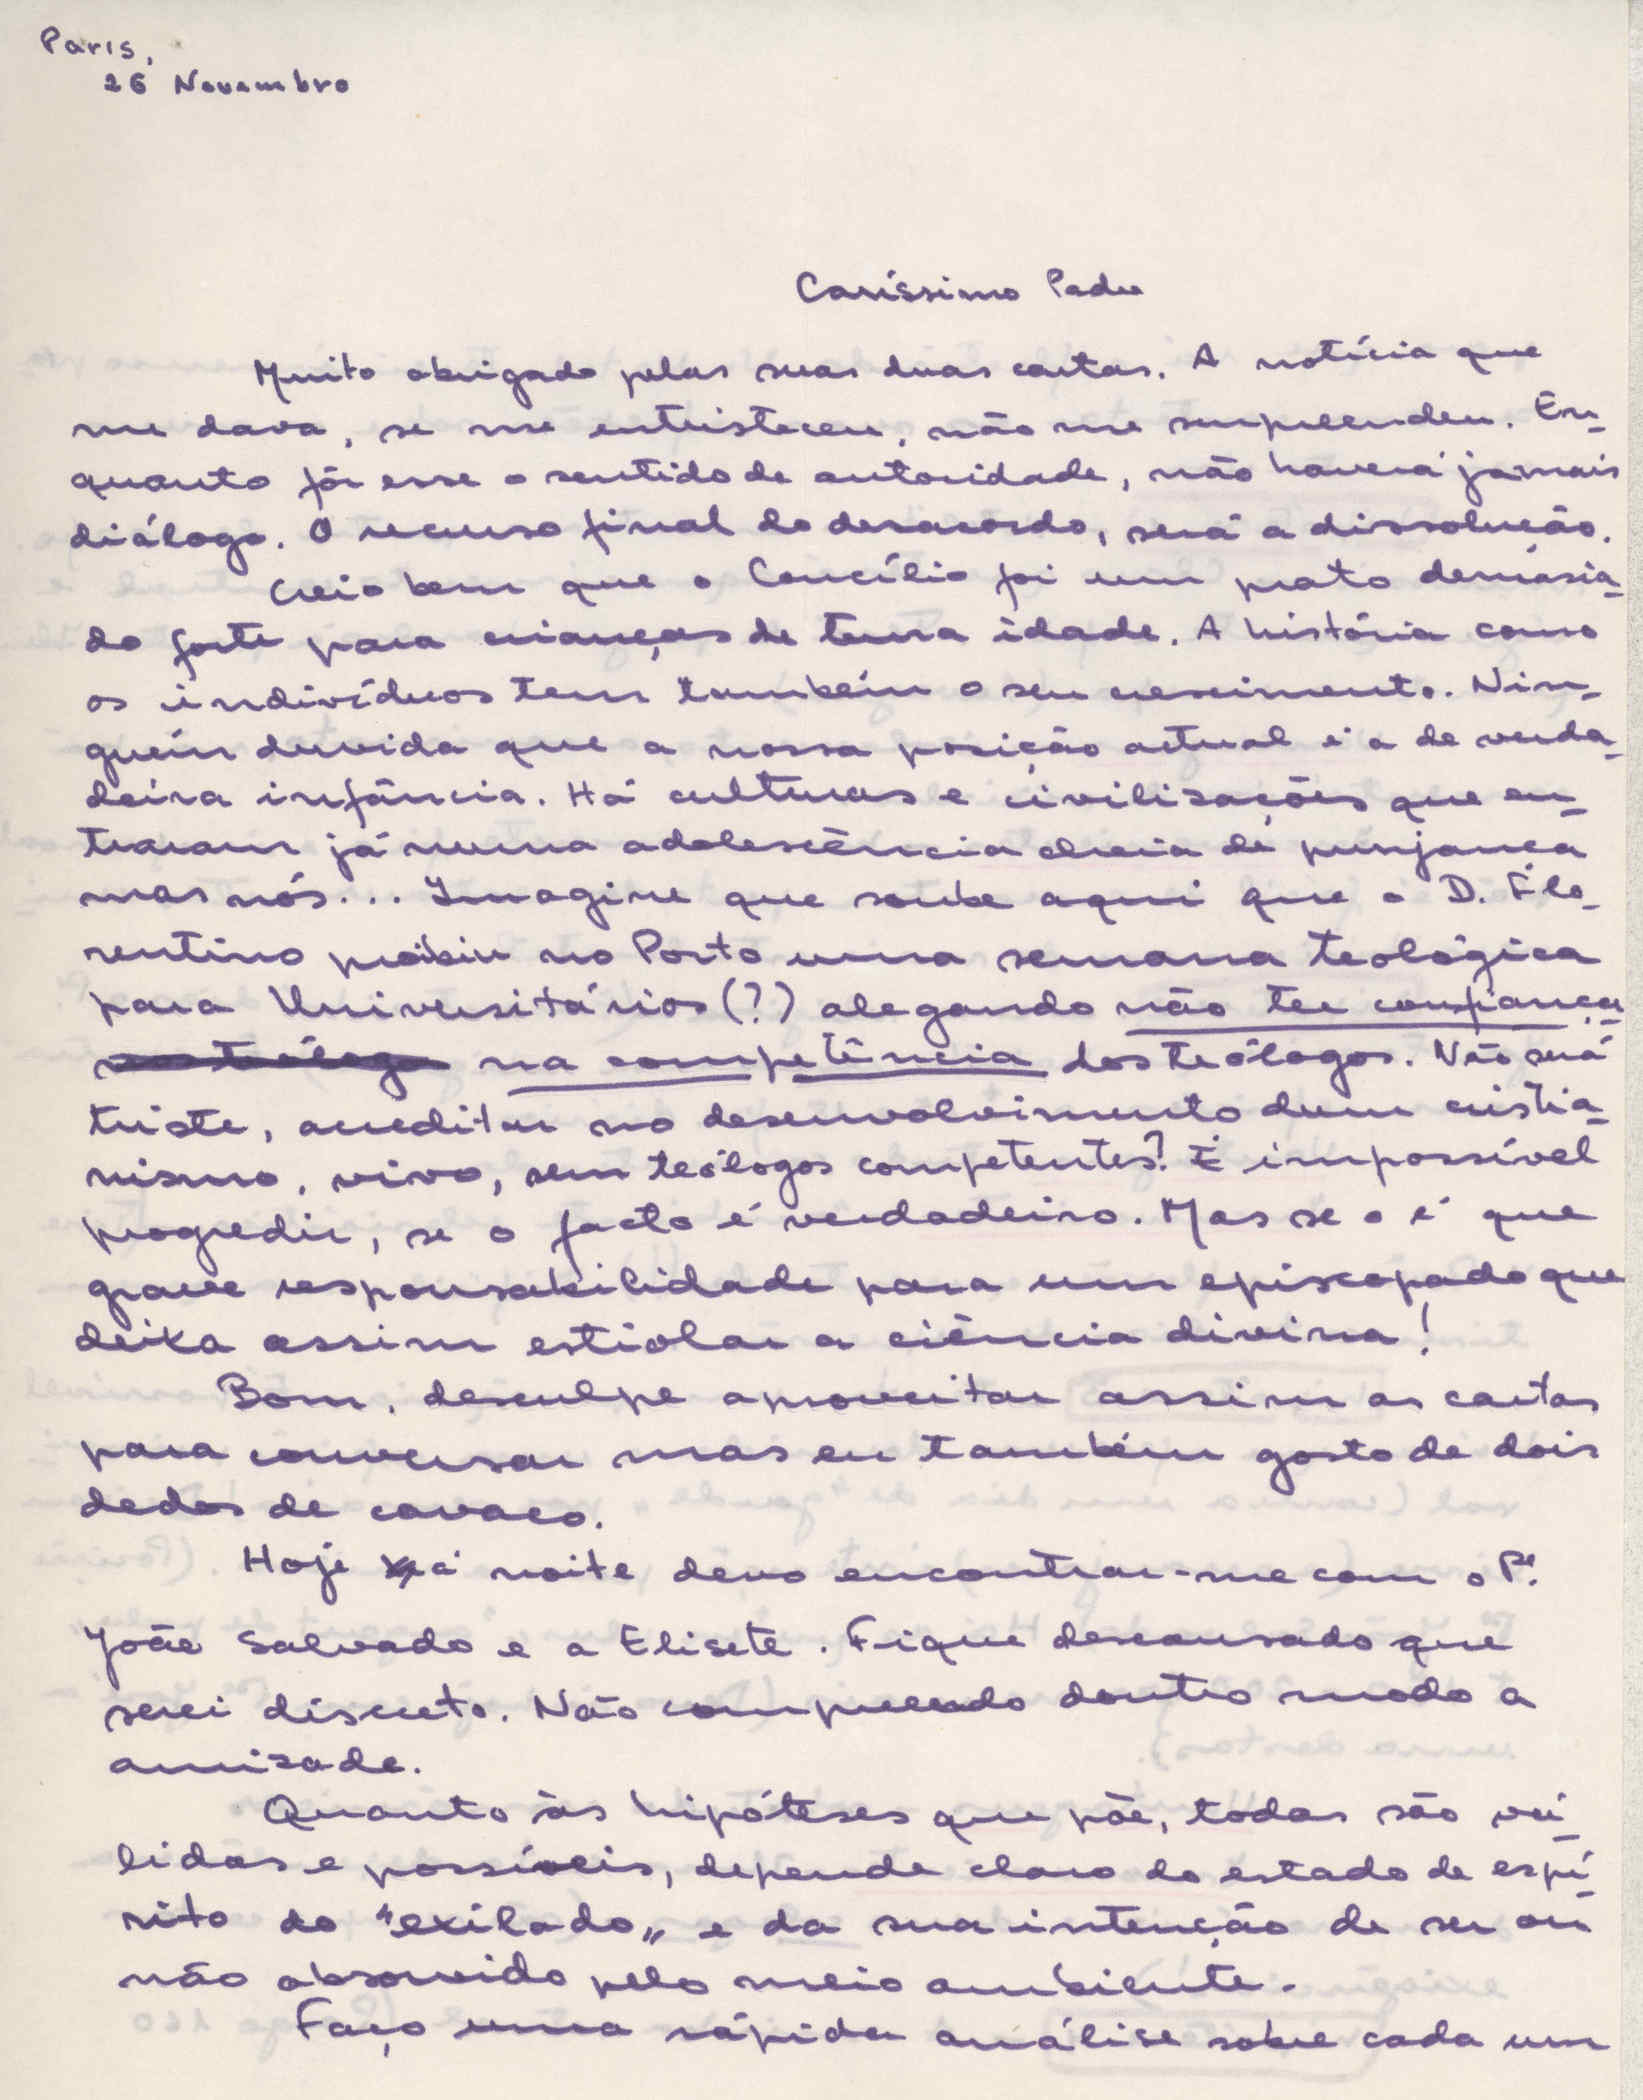 Paris,
26 Novembro
Caríssimo Padre
Muito obrigado pelas suas duas cartas. A notícia que
me dava, se me entristeceu, não me surpreendeu. En-
quanto fôr esse o sentido de autoridade, não haverá jamais
diálogo. O recurso final do desacordo, será a dissolução.
Creio bem que o Concílio foi um prato demasia-
do forte para crianças de tenra idade. A história como
os indivíduos tem também o seu crescimento. Nin-
guém duvida que a nossa posição actual é a de verda-
deira infância. Há culturas e civilisações que en-
traram já numa adolescência cheia de punjança
mas nós... Imagine que soube aqui que o D. Flo-
rentino proibiu no Porto uma semana teológica
para Universitários (?) alegando não ter confiança
na competência dos teólogos. Não será
triste, acreditar no desenvolvimento dum cristia-
nismo, vivo, sem teólogos competentes? É impossível
progredir, se o facto é verdadeiro. Mas se o é que
grave responsabilidade para um episcopado que
deixa assim estiolar a ciência divina!
Bom, desculpe aproveitar assim as cartas
para conversar mas eu também gosto de dois
dedos de cavaco.
Hoje à noite devo encontrar-me com o Pe.
João Salvado e a Elisete. Fique descansado que
serei discreto. Não compreendo doutro modo a
amizade.
Quanto às hipóteses que põe, todas são vá-
lidas e possíveis, depende claro do estado de espí-
rito do "exilado" e da sua intenção de ser ou
não absorvido pelo meio ambiente.
Faço uma rápida análise sobre cada um